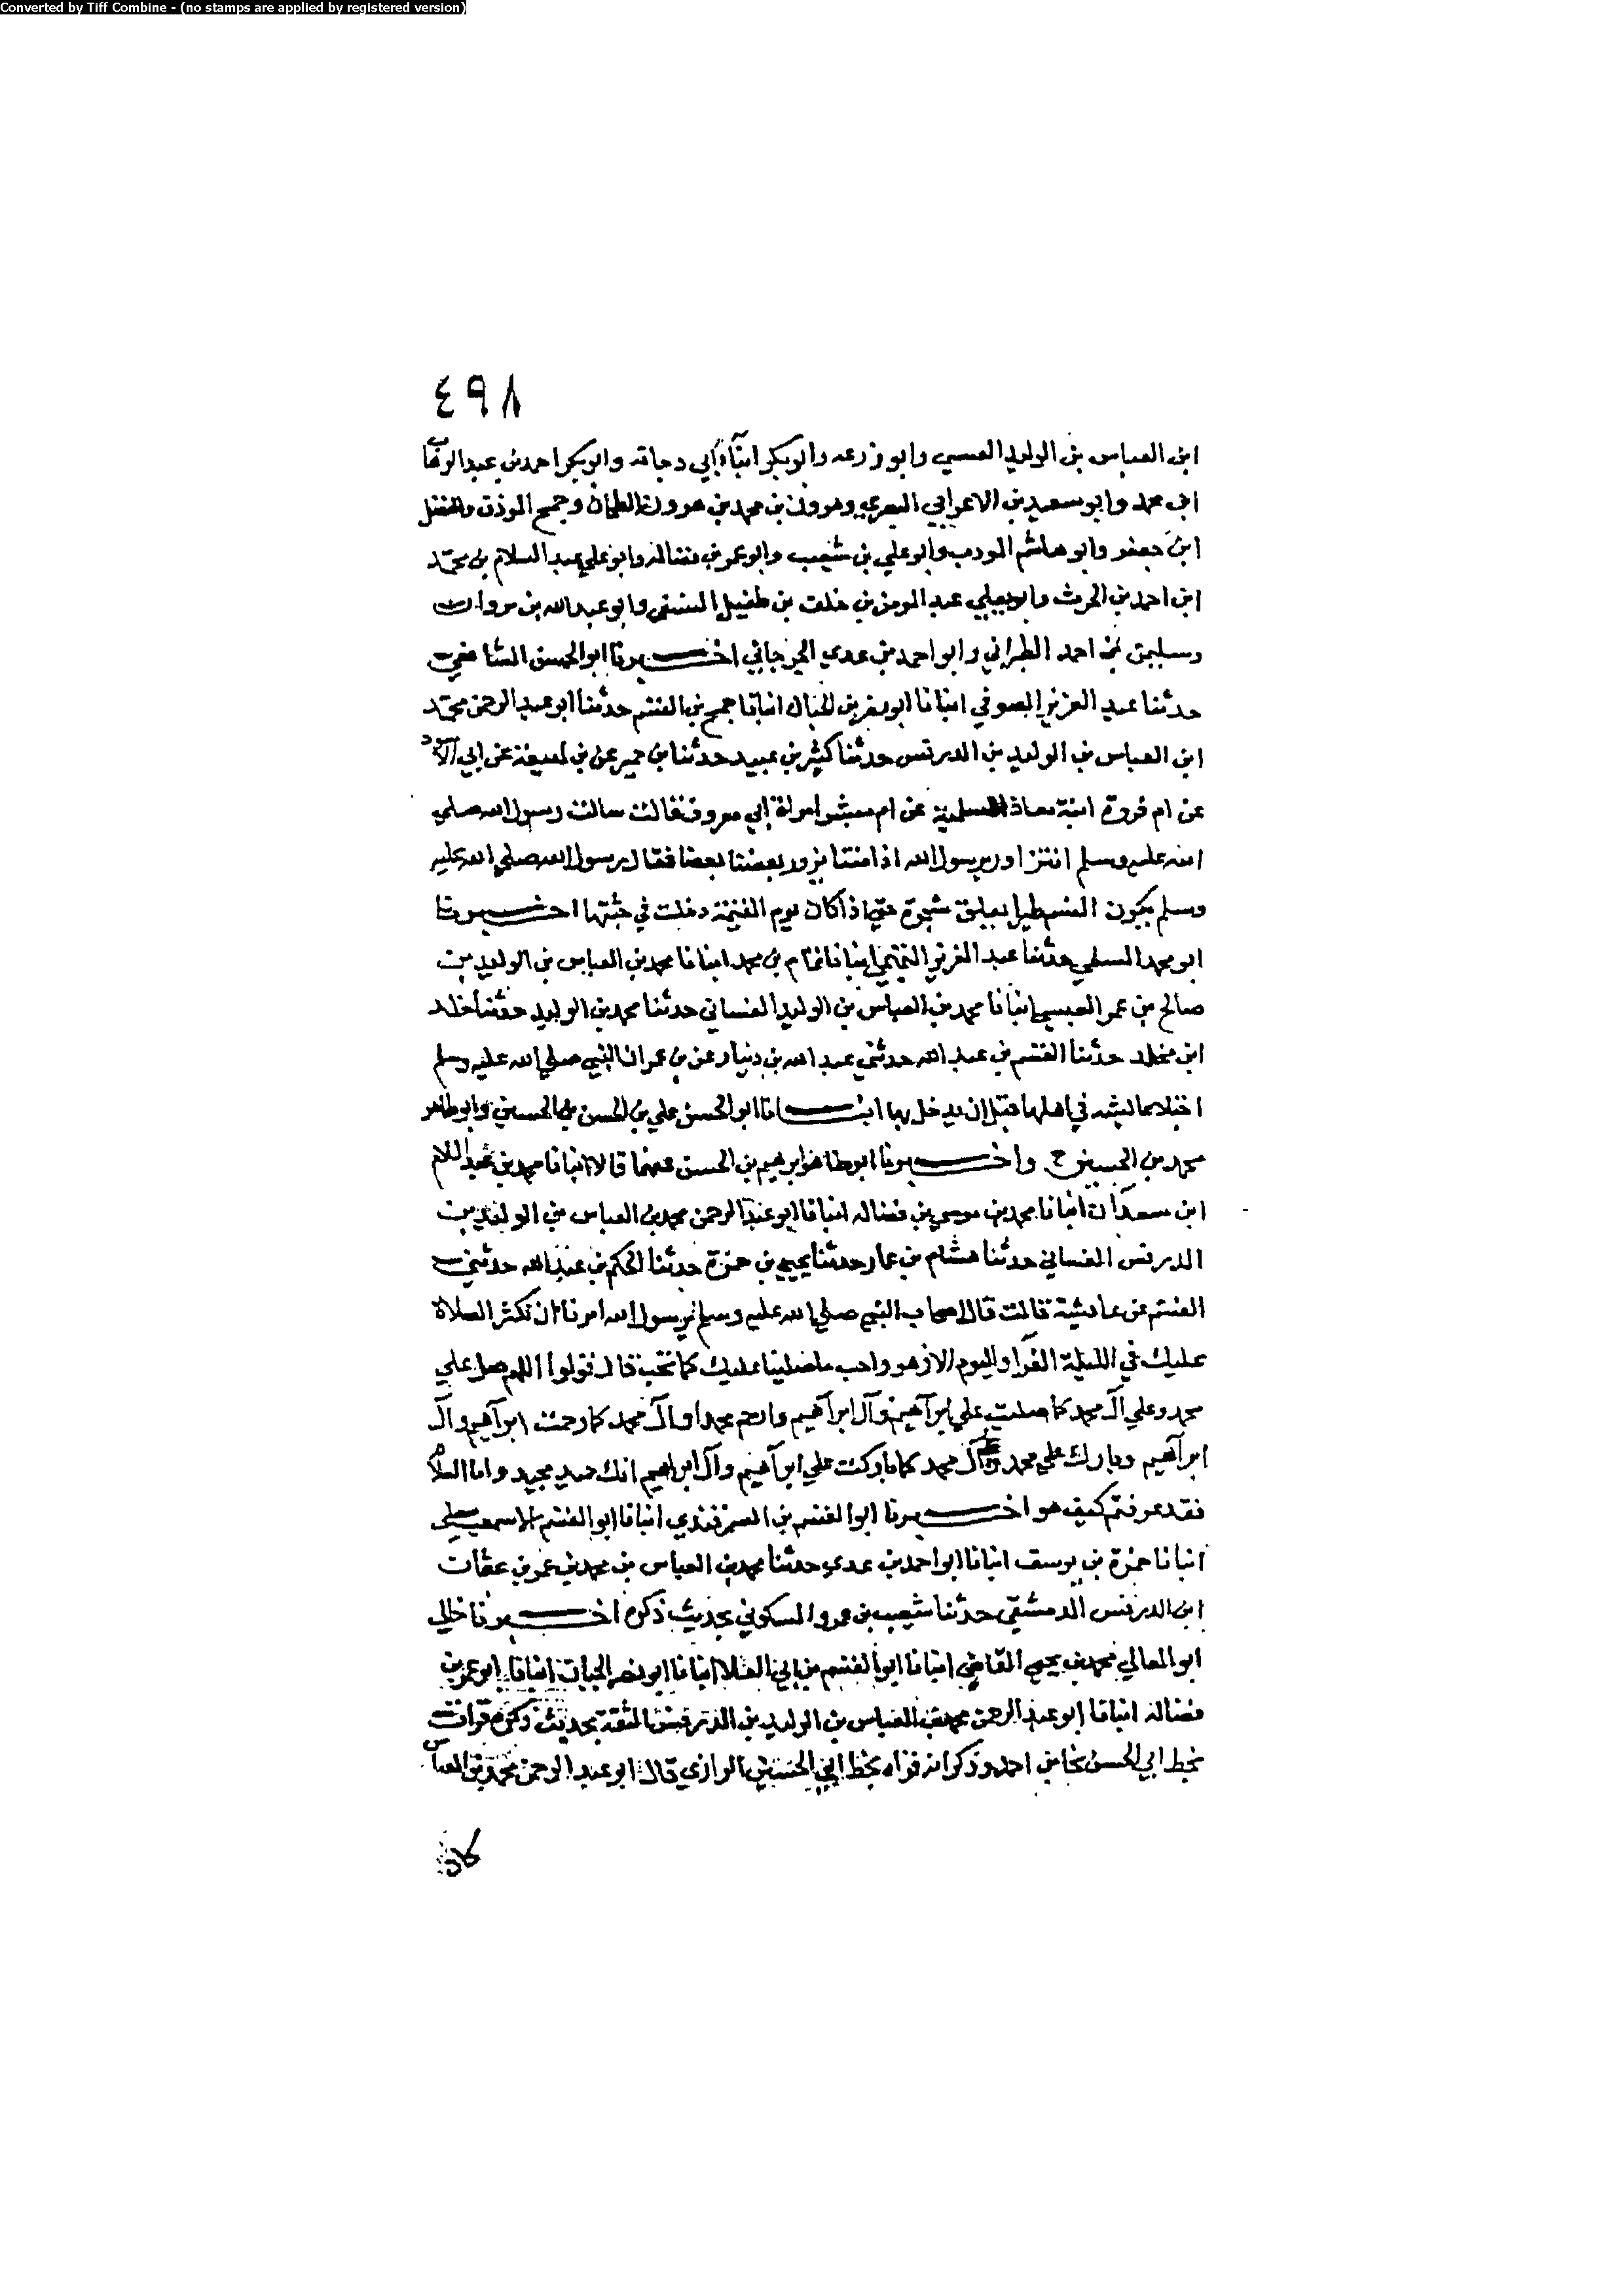 Converted by Tiff Combine - (no stamps are applied by registered version)
٤٩٨
ابن العباس بن الوليد العبسي وابو زرعه وابوبكر ابنا ابي دجانه وابوبكر احمد بن عبد الوهاب
ابن محمد وابو سعيد بن الاعرابي البصري وهرون بن محمد بن هرون الطحان وجمح الموذن والفضل
ابن جعفر وابو هاشم المودب وابو علي بن شعيب وابو عمر بن فضاله وابو علي عبد السلام بن محمد
ابن احمد بن الحرث وابو يعلي عبد المومن بن خلف بن طفيل النسفي وابو عبد الله بن مروان
وسليمن بن احمد الطبراني وابو احمد بن عدي الجرجاني اخبرنا ابو الحسن الشافعي
حدثنا عبد العزيز الصوفي انبانا ابو نصر بن الجبان انبانا جمح بن القسم حدثنا ابو عبد الرحمن محمد
ابن العباس بن الوليد بن الدرفس حدثنا كثير بن عبيد حدثنا بن حمير عن بن لهيعة عن ابي الاسود
عن ام فروة ابنة معاذ السلمية عن ام مبشر امراة ابي معروف قالت سالت رسول الله صلي
الله عليه وسلم انتزاور يرسول الله اذا متنا يزور بعضنا بعضا فقال رسول الله صلي الله عليه
وسلم يكون النسم طيرا يعلق شجرة حتي اذا كان يوم القيمة دخلت في جثتها اخبرنا
ابو محمد السلمي حدثنا عبد العزيز التميمي انبانا تمام بن محمد انبانا محمد بن العباس بن الوليد بن
صالح بن عمر العبسي انبانا محمد بن العباس بن الوليد الغساني حدثنا محمد بن الوليد حدثنا خالد
ابن مخلد حدثنا القسم بن عبد الله حدثني عبد الله بن دينار عن بن عمر ان النبي صلي الله عليه وسلم
اختلا بعائشه في اهلها قبل ان يدخل بها انبانا ابو الحسن علي بن الحسن بن الحسين وابو طاهر
محمد بن الحسين ح واخبرنا ابو طاهر ابرهيم بن الحسن عنهما قالا انبانا محمد بن عبد السلام
ابن سعدان انبانا محمد بن موسي بن فضاله انبانا ابو عبد الرحمن محمد بن العباس بن الوليد بن
الدرفس الغساني حدثنا هشام بن عمار حدثنا يحيي بن حمزة حدثنا الحكم بن عبد الله حدثني
القسم عن عائشة قالت قال اصحاب النبي صلي الله عليه وسلم يرسول الله امرنا ان نكثر الصلاة
عليك في الليلة الغرا واليوم الازهر واحب ما صلينا عليك كما تحب قال قولوا اللهم صل علي
محمد وعلي آل محمد كما صليت علي ابرآهيم وآل ابرآهيم وارحم محمدا وآل محمد كما رحمت ابرآهيم وآل
ابرآهيم وبارك علي محمد وعلي آل محمد كما باركت علي ابرآهيم وآل ابراهيم انك حميد مجيد واما السلام
فقد عرفتم كيف هو اخبرنا ابو القسم بن السمرقندي انبانا ابو القسم الاسمعيلي
انبانا حمزة بن يوسف انبانا ابو احمد بن عدي حدثنا محمد بن العباس بن محمد بن عمر بن عقات
ابن الدرفس الدمشقي حدثنا شعيب بن عمرو السكوني بحديث ذكره اخبرنا خالي
ابو المعالي محمد بن يحيي القاضي انبانا ابو القسم بن ابي العلا انبانا ابو نصر الجبان انبانا ابو عمر بن
فضاله انبانا ابو عبد الرحمن محمد بن العباس بن الوليد بن الدرفس الثقة بحديث ذكره قرات
بخط ابي الحسن نجا بن احمد وذكر انه قراه بخط ابي الحسين الرازي قال ابو عبد الرحمن محمد بن العباس